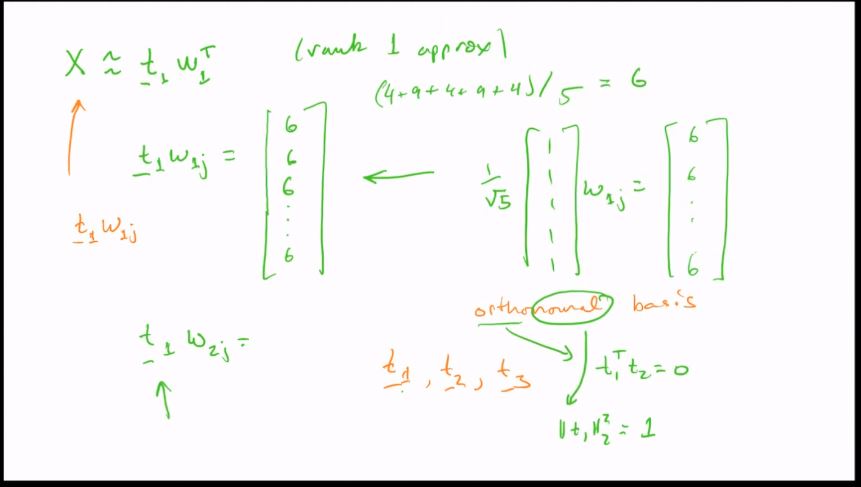 X ≈ t₁ w₁ᵀ (rank 1 approx)
(4+9+4+9+4)/5 = 6
t₁w₁ⱼ = [6 6 6 ⋮ 6] ← 1/√5 [1 1 1 1 1] w₁ⱼ = [6 6 ⋮ 6]
t₁w₁ⱼ
orthonormal basis
t₁ w₂ⱼ =
t₁, t₂, t₃
t₁ᵀt₂ = 0
‖t₁‖₂² = 1